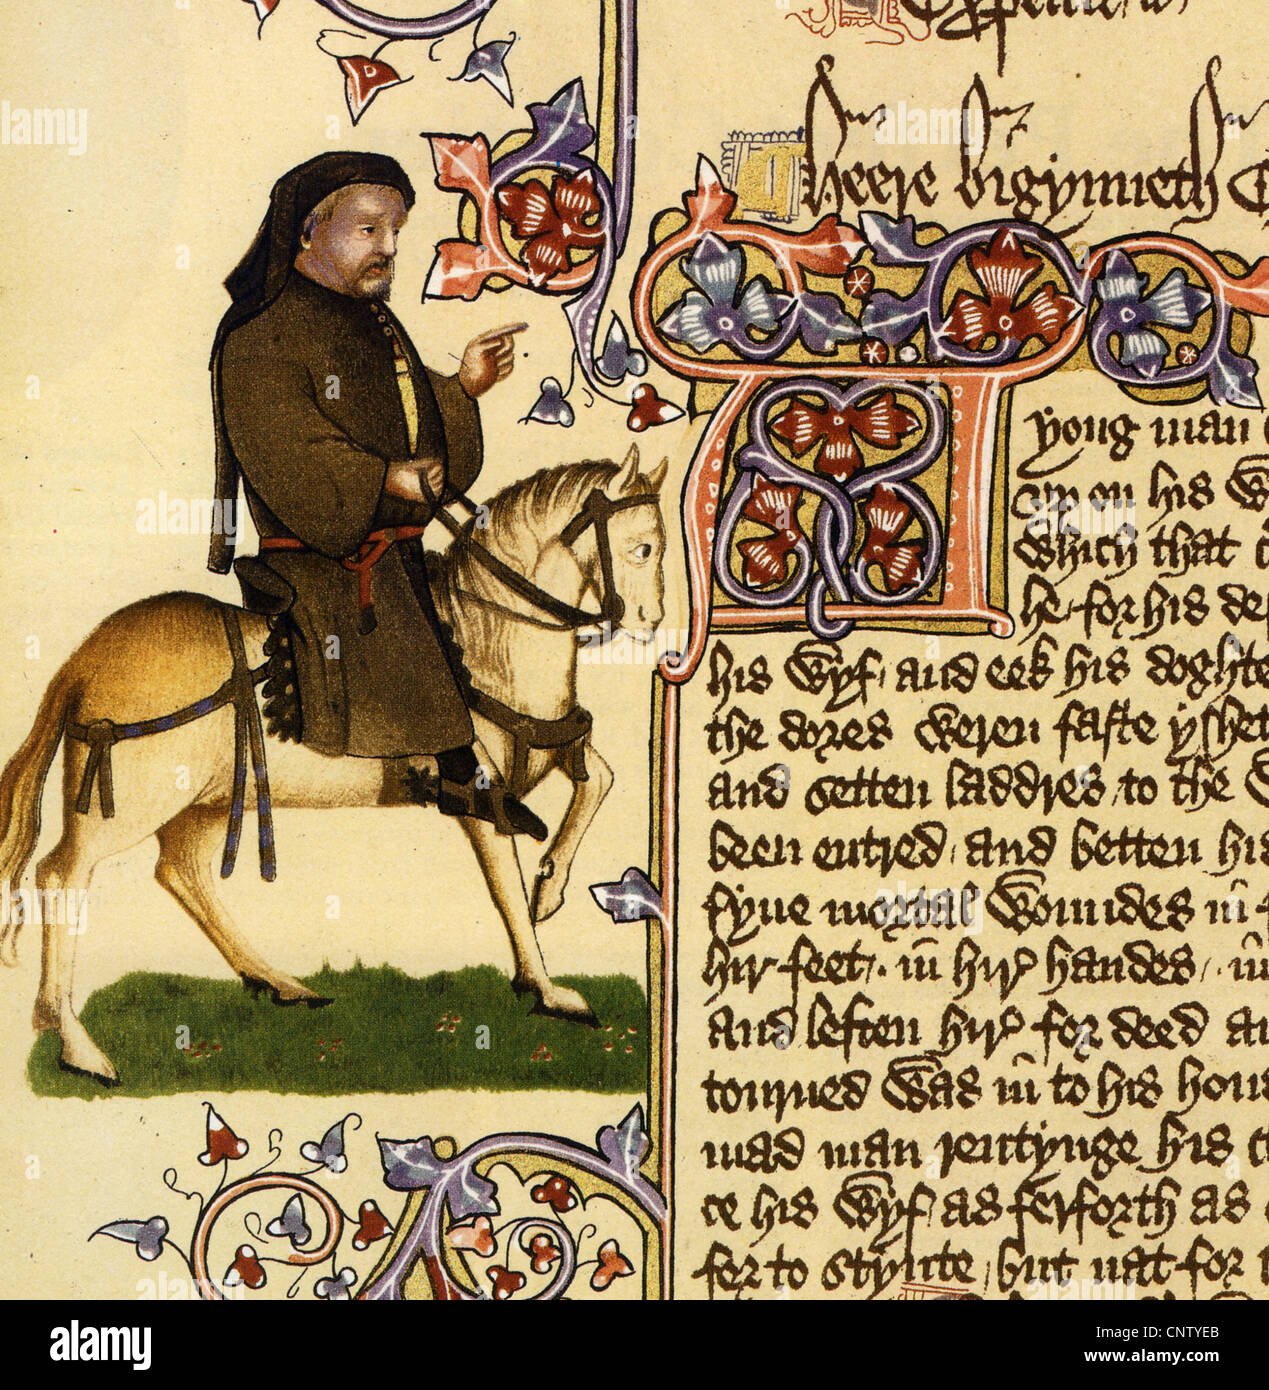 Heere bigynneth
yong man
up on his
Which that
he for his de
his Wyf and eek his doghte
the dores weren faste yshet
and setten laddres to the
been entred and betten his
fyue mortal Woundes in
hir feet in hir handes in
and leften hir for deed a
tourned Was in to his hou
mad man rentynge his c
ce his Wyf as ferforth as
for to stynte but nat for
alamy
Image ID: CNTYEB
www.alamy.com